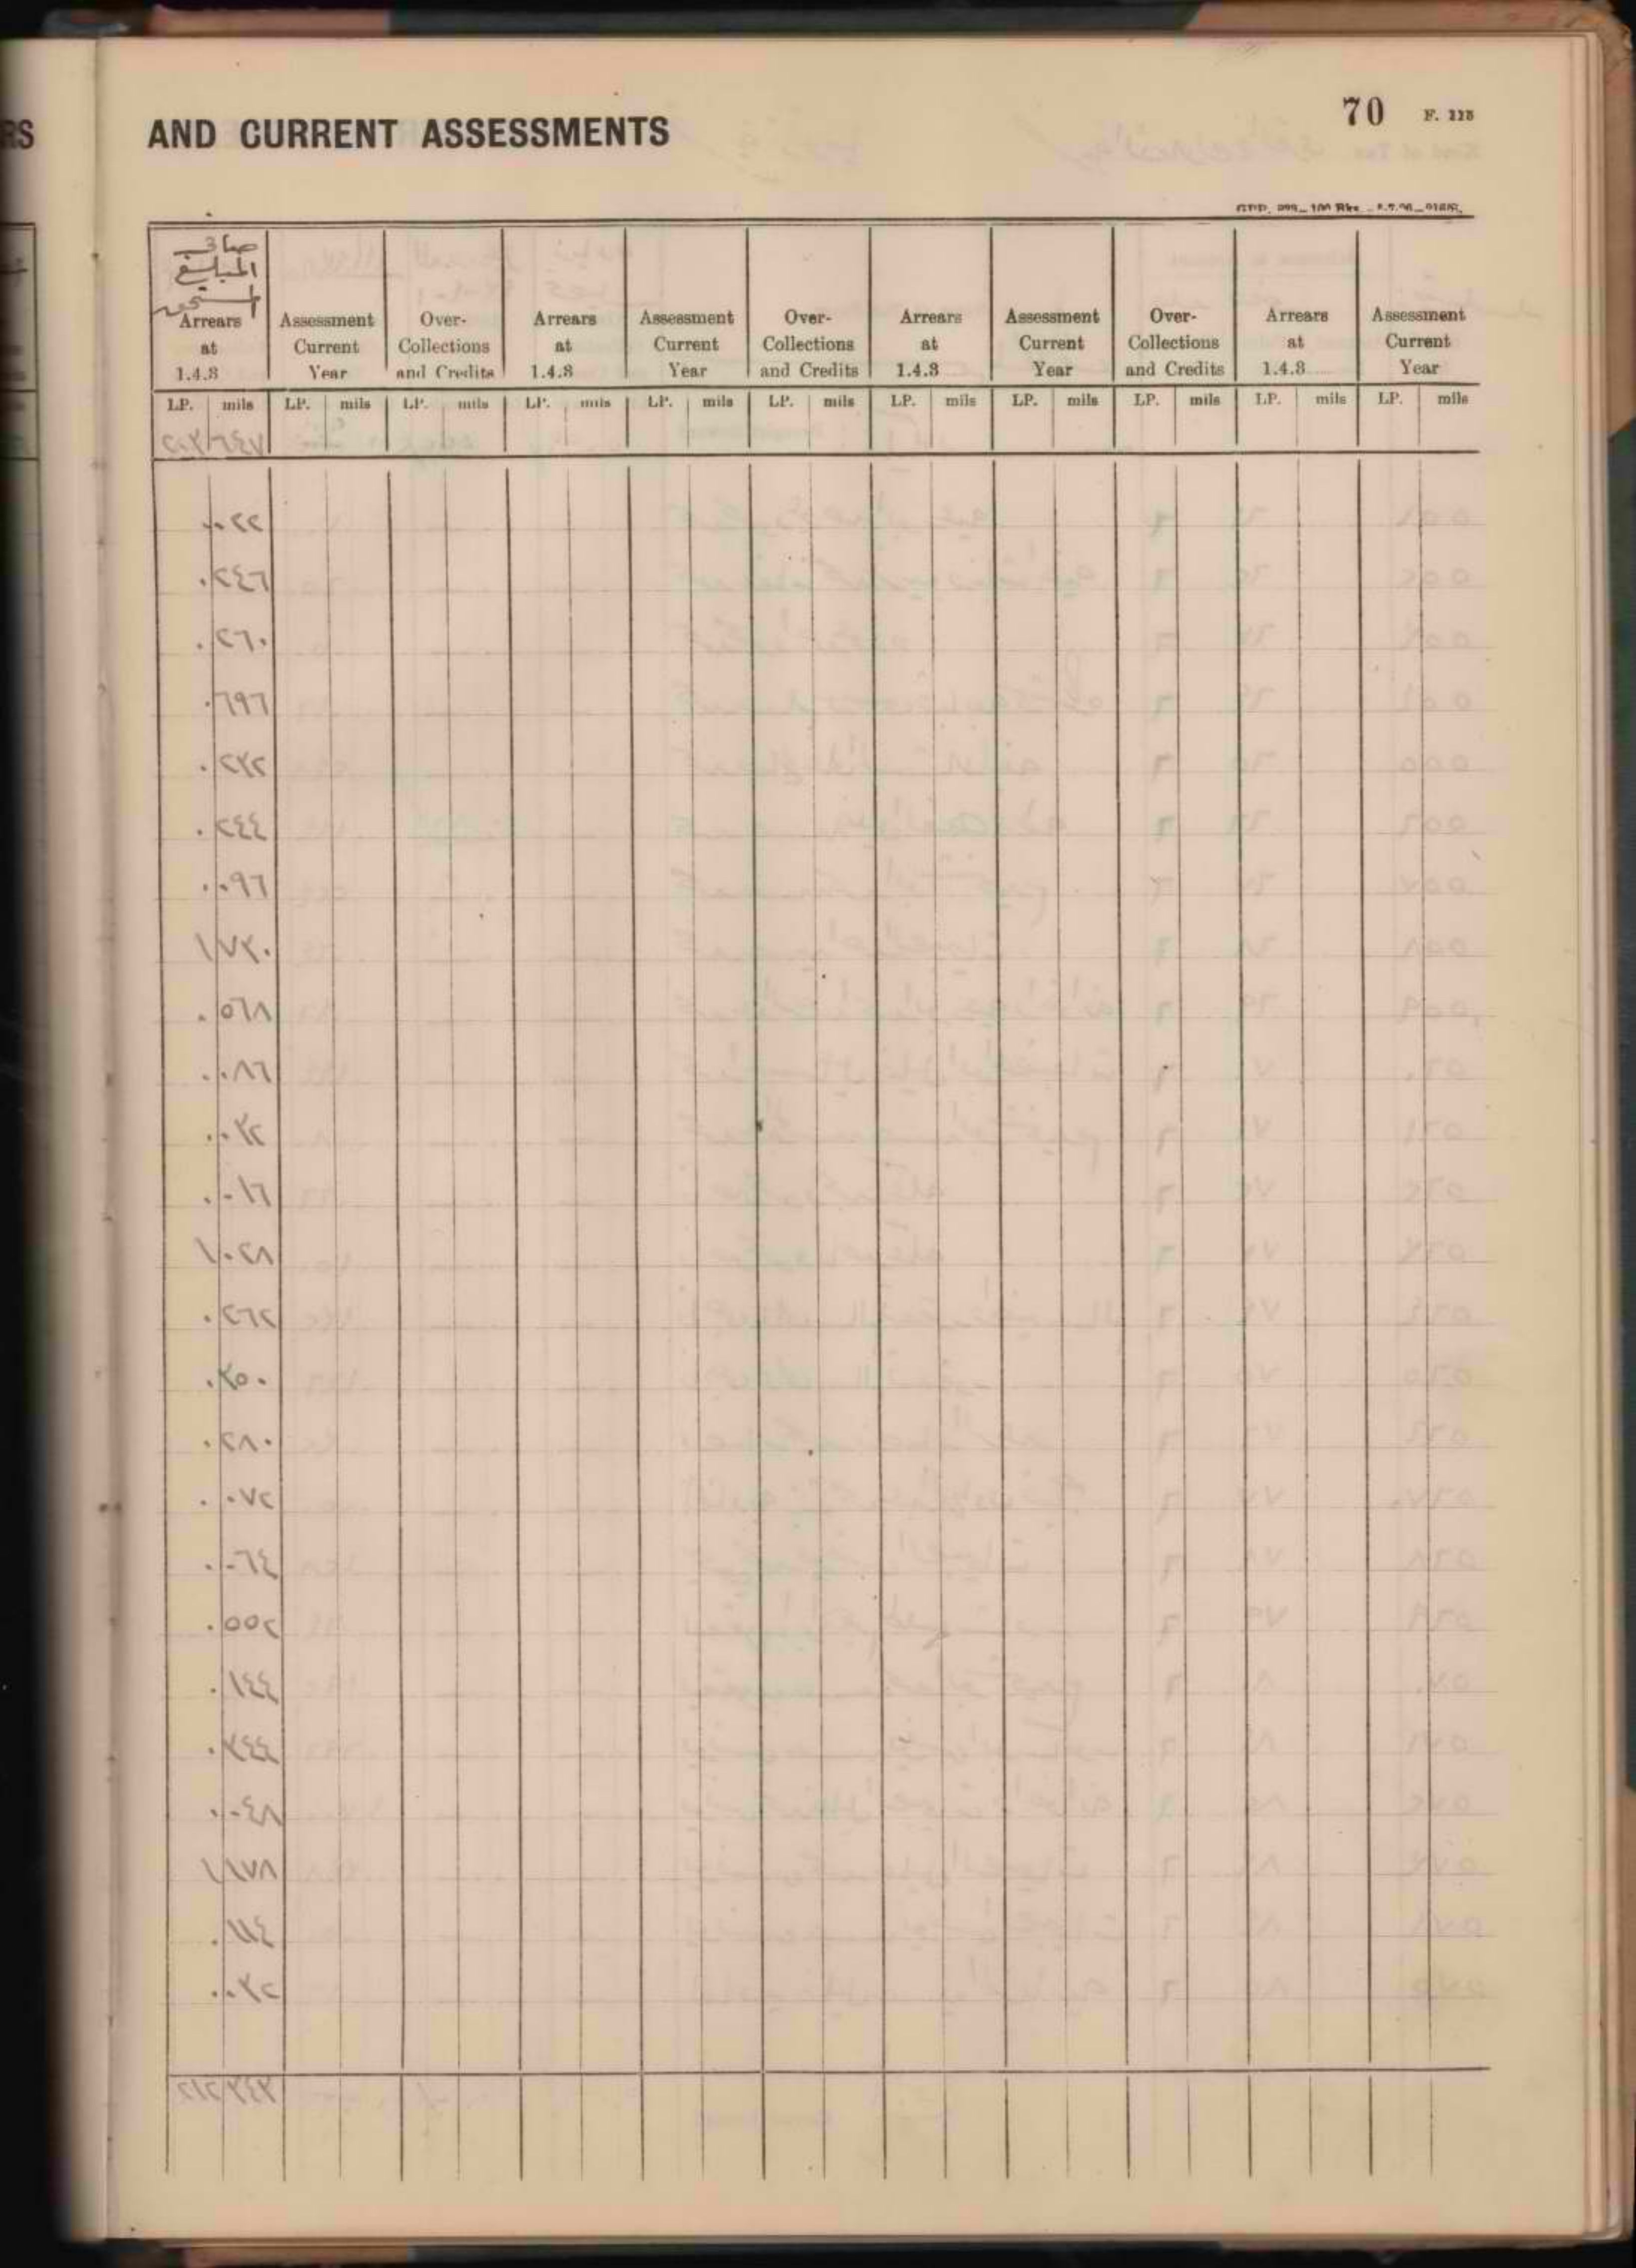 RS
AND CURRENT ASSESSMENTS
70 F. 225
صافي
المبلغ
المستحق
Arrears at 1.4.3 | Assessment Current Year | Over-Collections and Credits | Arrears at 1.4.3 | Assessment Current Year | Over-Collections and Credits | Arrears at 1.4.3 | Assessment Current Year | Over-Collections and Credits | Arrears at 1.4.3 | Assessment Current Year
LP. mils LP. mils LP. mils LP. mils LP. mils LP. mils LP. mils LP. mils LP. mils LP. mils LP. mils
٢٠٣ ٦٤٧
٠ ٠٢٢
٠ ٢٤٦
٠ ٢٦٠
٠ ٦٩٦
٠ ٢٣٢
٠ ٢٤٤
٠ ٠٩٦
١ ٧٣٠
٠ ٥٦٨
٠ ٠٨٦
٠ ٠٣٢
٠ ٠١٦
١ ٠٢٨
٠ ٢٦٢
٠ ٣٥٠
٠ ٢٨٠
٠ ٠٧٢
٠ ٠٦٤
٠ ٥٥٢
٠ ١٤٤
٠ ٣٤٤
٠ ٠٤٨
١ ١٧٨
٠ ١١٤
٠ ٠٣٢
٢١٢ ٣٤٣